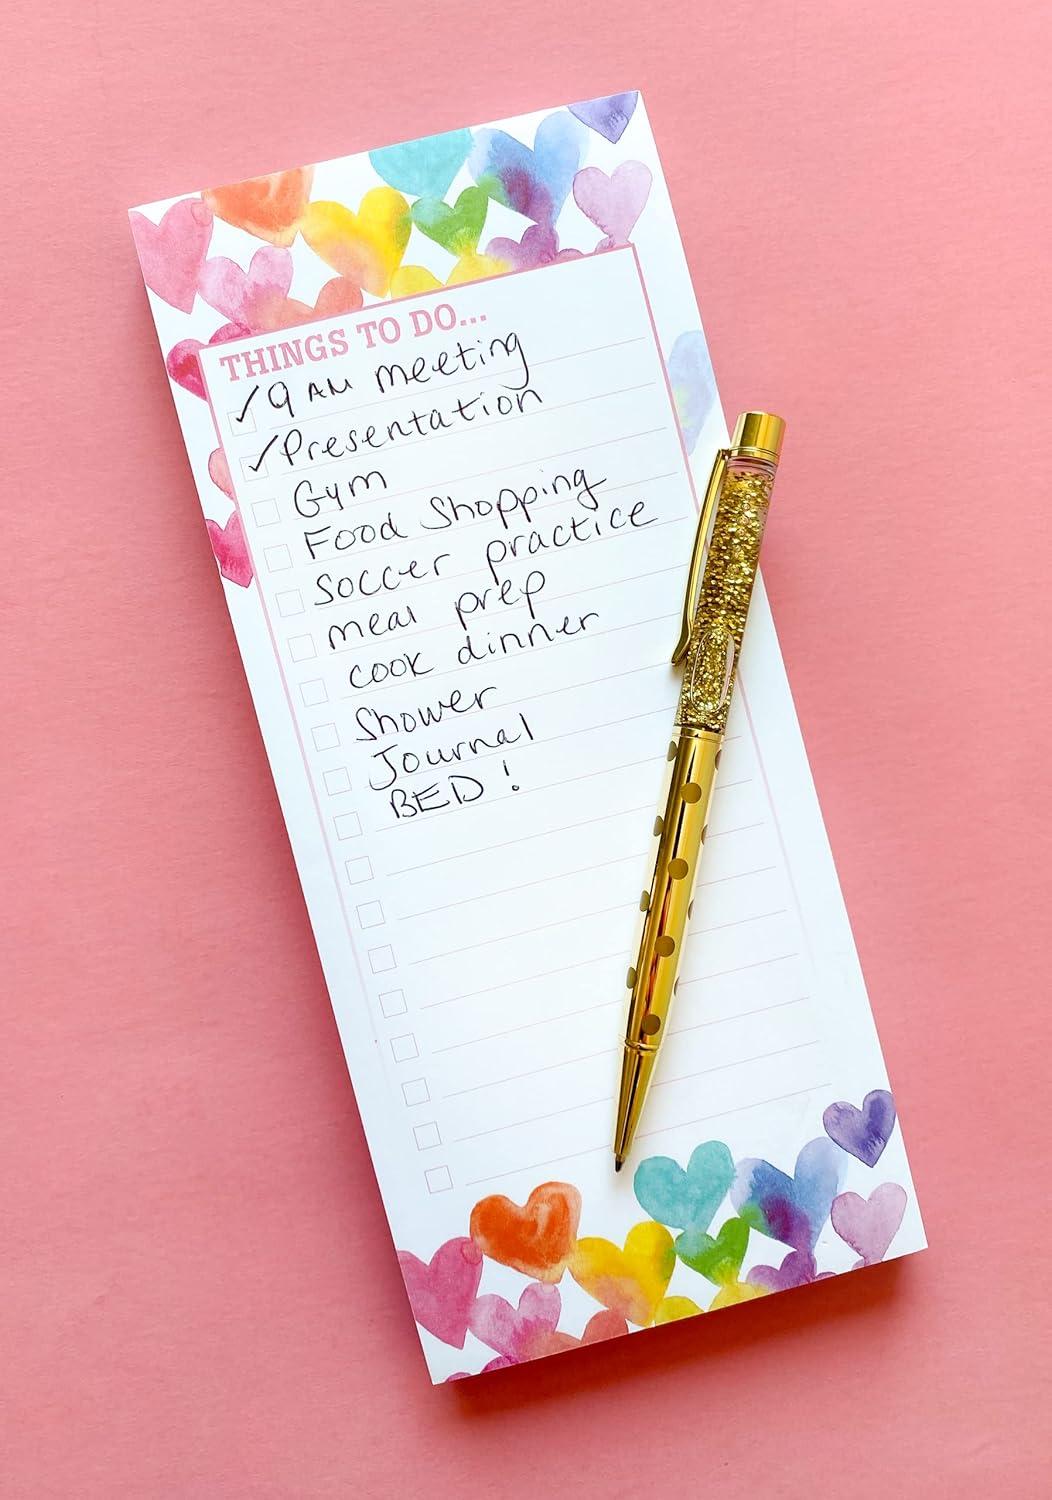 THINGS TO DO...
✓ 9 AM meeting
✓ Presentation
Gym
Food Shopping
Soccer practice
meal prep
cook dinner
Shower
Journal
BED!